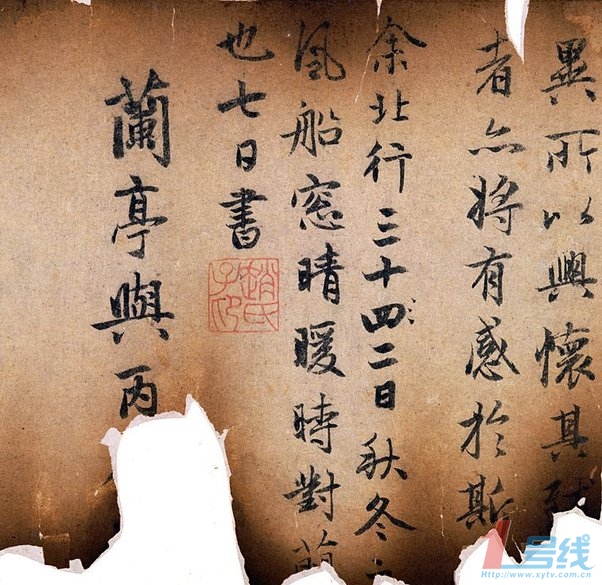 異所以興懷其致
者亦将有感於斯
余北行三十四二日秋冬
風船窓晴暖時對
也七日書
趙氏子昂
蘭亭與丙
号线
Http://www.xytv.com.cn